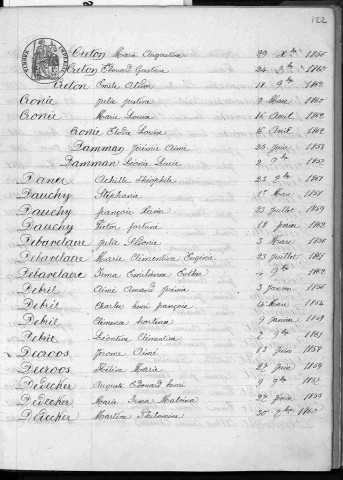 122
Creton Marie Augustine 29 Xbre 1856
Creton Edouard Gustave 24 1860
Creton Emile 18 9bre 1862
Cronie Julie Justine 9 Mars 1860
Cronie Marie Louise 16 Avril 1862
Cronie Elodie Louise 16 Avril 1862
Damman Jérémie Aimé 26 Juin 1853
Damman Léonie Lucie 2 9bre 1852
Daner Achille Théophile 23 1861
Dauchy Stéphanie 1er Mars 1858
Dauchy françois Xavier 23 Juillet 1859
Dauchy Victor fortuné 18 1862
Debavelaere Julie Sidonie 3 Mars 1856
Debavelaere Marie Clémentine Eugénie 23 Juillet 1861
Debavelaere Irma Emilienne Esther 4 9bre 1862
Debril Aimé Amand Jérémie 3 Janvier 1856
Debril Charles henri françois 4 Mars 1854
Debril Clémence hortense 9 Janvier 1859
Debril Léontine Clémentine 2 9bre 1861
Decroos Jérome Aimé 13 Juin 1858
Decroos Hélène Marie 22 Juin 1859
Dedecker Auguste Edouard henri 9 9bre 1852
Dedecker Marie Irma Malvina 22 Juin 1859
Dedecker Martine Philomène 30 1860